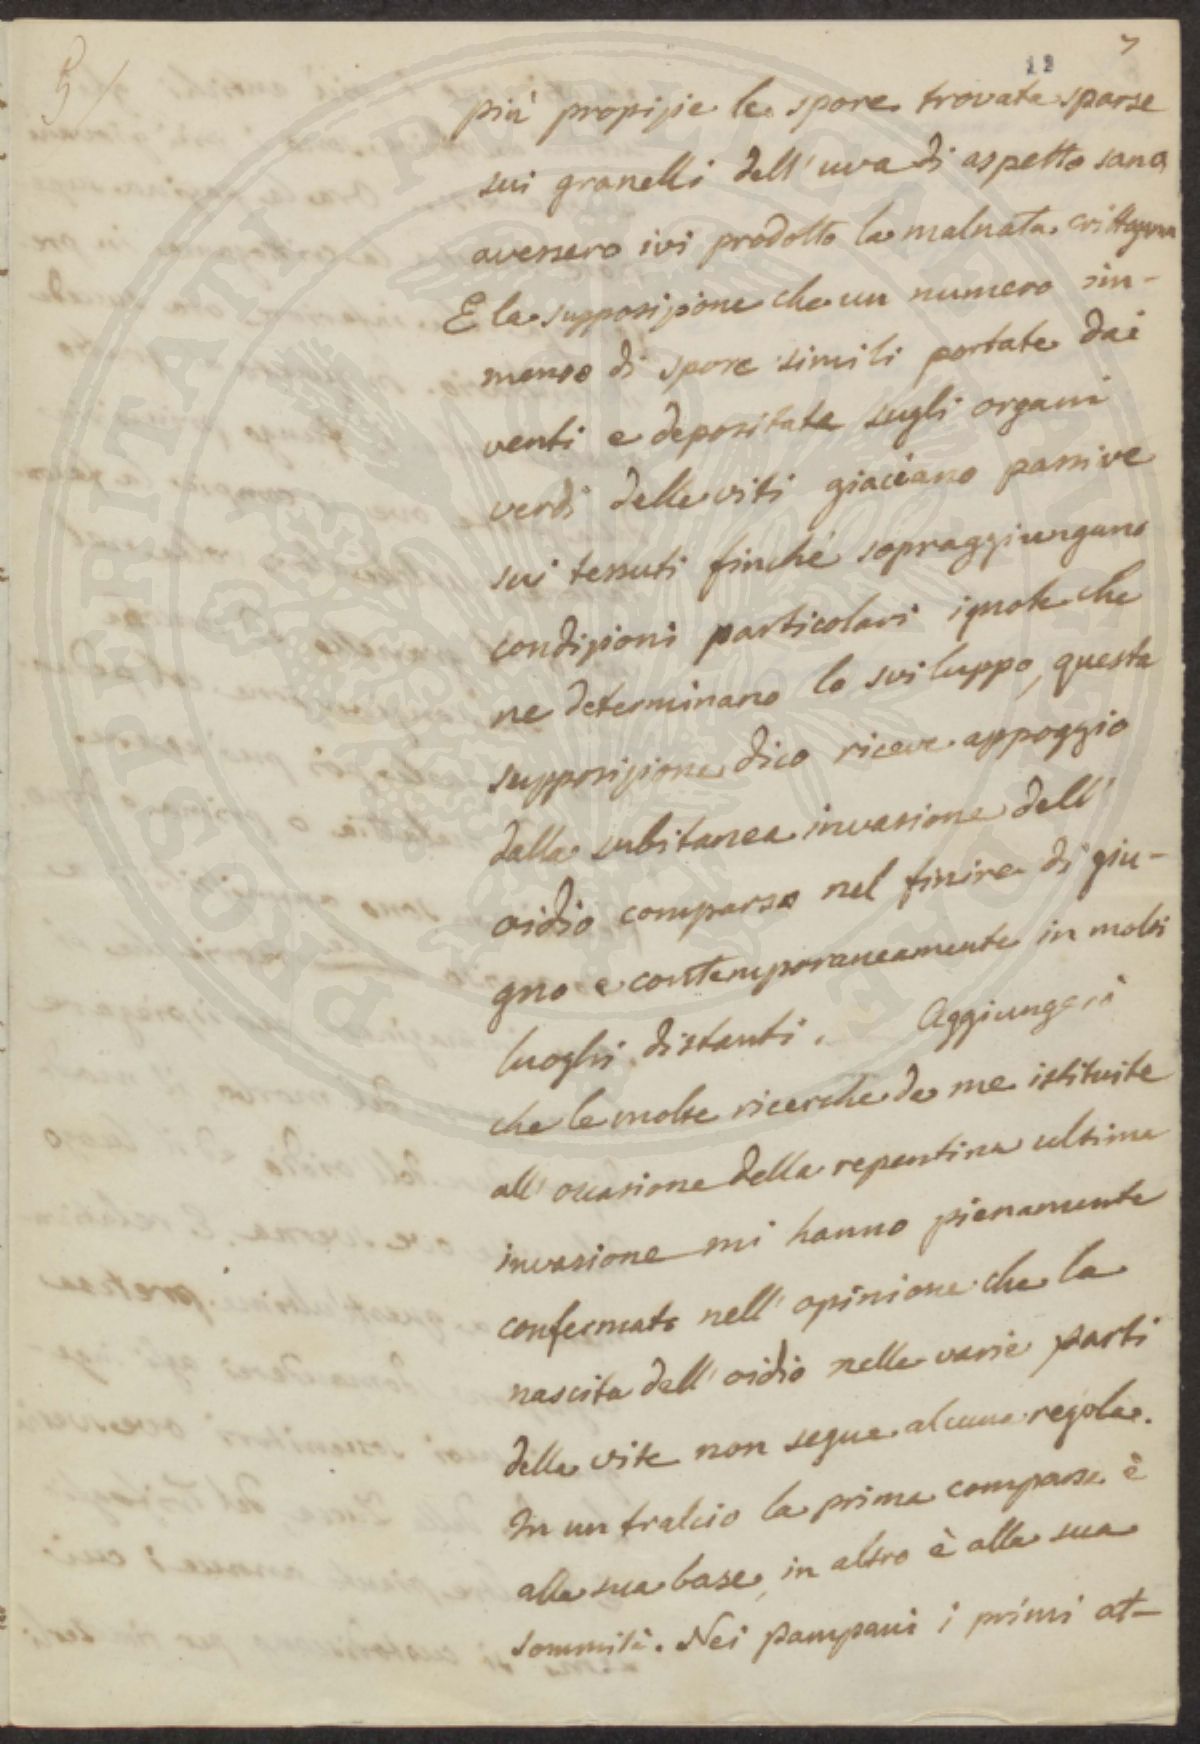 5/
7
12
più propizie le spore trovate sparse
sui granelli dell'uva di aspetto sano
avessero ivi prodotto la malnata crittogama
E la supposizione che un numero im-
menso di spore simili portate dai
venti e depositate sugli organi
verdi delle viti giacciano passive
sui tessuti finché sopraggiungano
condizioni particolari ignote che
ne determinano lo sviluppo, questa
supposizione dico riceve appoggio
dalla subitanea invasione dell'
oidio comparso nel finire di giu-
gno e contemporaneamente in molti
luoghi distanti. Aggiungerò
che le molte ricerche da me istituite
all'occasione della repentina ultima
invasione mi hanno pienamente
confermato nell'opinione che la
nascita dell'oidio nelle varie parti
della vite non segua alcuna regola.
In un tralcio la prima comparsa è
alla sua base, in altro è alla sua
sommità. Nei pampani i primi at-
PROSPERITATI PUBLICAE AUGENDAE